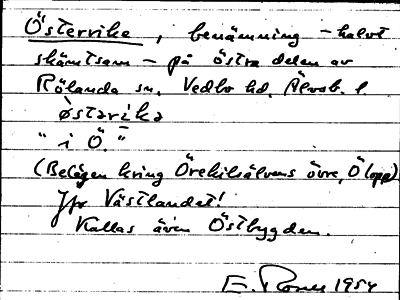 Österrike, benämning - halvt
skämtsam - på östra delen av
Rölanda sn. Vedbo hd. Älvsb. l.
òstərikə
" i Ö. "
(Belägen kring Örekilsälvens övre,
Jfr Västlandet!
Kallas även Östbygden.
E. 1954